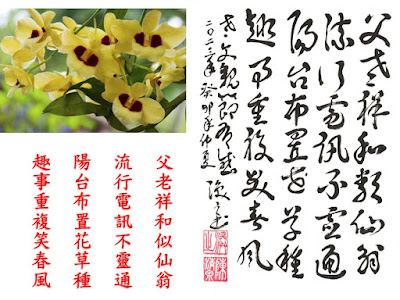 父老祥和仙翁
流行電訊不靈通
陽台布置花草種
趣事重複笑春風
父親節有感
二〇二三年癸卯年仲夏
父老祥和似仙翁
流行電訊不靈通
陽台布置花草種
趣事重複笑春風